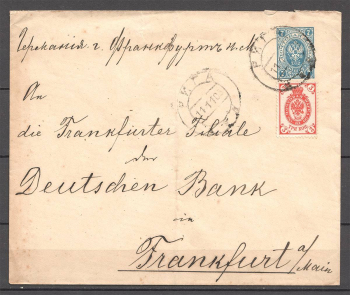 Германія г. Франкфуртъ н. М.
An
die Frankfurter Filiale
der
Deutschen Bank
in
Frankfurt a/Main
РИГА
7
3